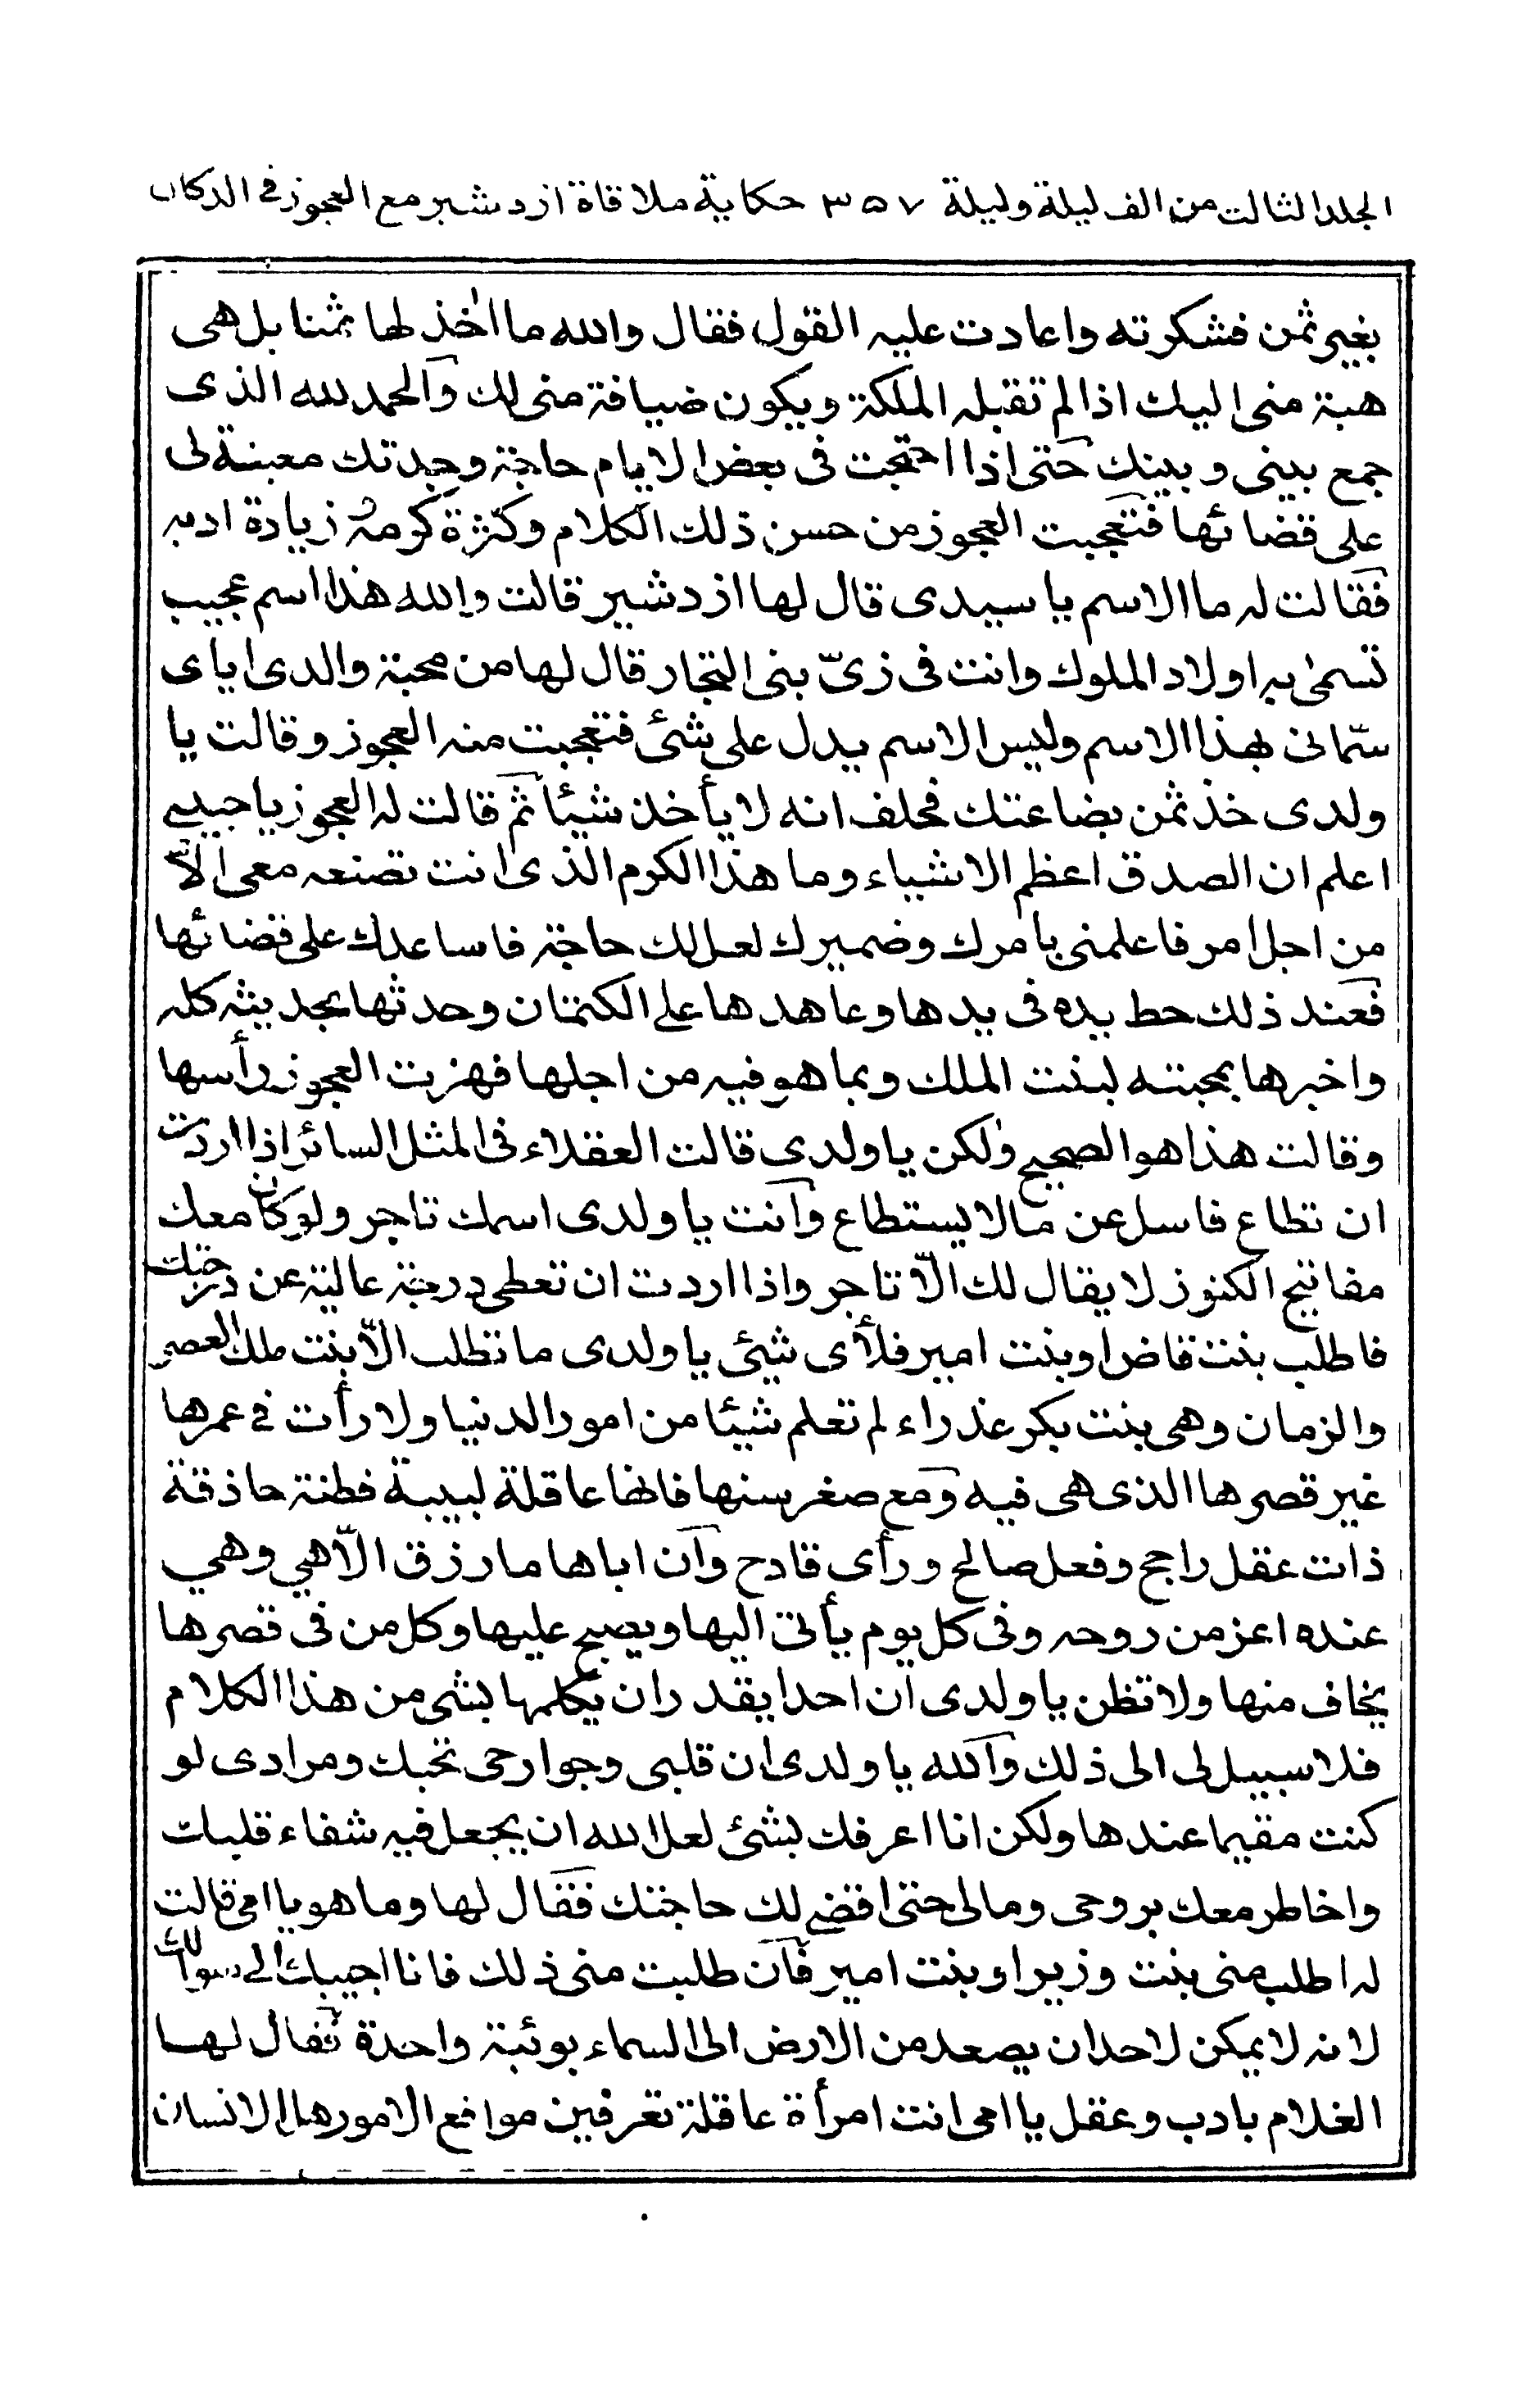 الجلد الثالث من الف ليلة وليلة ٣٥٧ حكاية ملاقاة ازدشير مع العجوز فى الدكان
بغير ثمن فشكرته واعادت عليه القول فقال والله ما اٰخذ لها ثمنا بل هى
هبة منى اليك اذا لم تقبله الملكة ويكون ضيافة منى لك والحمد لله الذى
جمع بينى وبينك حتى اذا احتجت فى بعض الايام حاجة وجدتك معينة لى
على قضائها فتعجبت العجوز من حسن ذلك الكلام وكثرة كرمه و زيادة ادبه
فقالت له ما الاسم يا سيدى قال لها ازدشير قالت والله هذا اسم عجيب
تسمىٰ به اولاد الملوك وانت فى زىّ بنى التجار قال لها من محبة والدى اياى
سمّانى بهذا الاسم وليس الاسم يدل على شئ فتعجبت منه العجوز وقالت يا
ولدى خذ ثمن بضاعتك فحلف انه لا يأخذ شيئا ثم قالت له العجوز يا حبيبى
اعلم ان الصدق اعظم الاشياء وما هذا الكرم الذى انت تصنعه معى الّا
من اجل امر فاعلمنى بامرك وضميرك لعل لك حاجة فاساعدك على قضائها
فعند ذلك حط يده فى يدها وعاهدها على الكتمان وحدثها بحديثه كله
واخبرها بمحبته لبنت الملك وبما هو فيه من اجلها فهزت العجوز رأسها
وقالت هذا هو الصحيح ولكن يا ولدى قالت العقلاء فى المثل السائر اذا اردت
ان تطاع فاسل عن ما لا يستطاع وانت يا ولدى اسمك تاجر ولو كان معك
مفاتيح الكنوز لا يقال لك الّا تاجر واذا اردت ان تعطى درجة عالية عن درجتك
فاطلب بنت قاض او بنت امير فلأى شيئ يا ولدى ما تطلب الّا بنت ملك العصر
والزمان وهى بنت بكر عذراء لم تعلم شيئا من امور الدنيا ولا رأت فى عمرها
غير قصرها الذى هى فيه ومع صغر سنها فانها عاقلة لبيبة فطنة حاذقة
ذات عقل راجح وفعل صالح ورأى قادح وان اباها ما رزق الّا هي وهي
عنده اعز من روحه وفى كل يوم يأتى اليها ويصبح عليها وكل من فى قصرها
يخاف منها ولا تظن يا ولدى ان احدا يقدر ان يكلمها بشى من هذا الكلام
فلا سبيل لى الى ذلك والله يا ولدى ان قلبى وجوارحى تحبك ومرادى لو
كنت مقيما عندها ولكن انا اعرفك بشئ لعل الله ان يجعل فيه شفاء قلبك
واخاطر معك بروحى ومالى حتى اقضى لك حاجتك فقال لها وما هو يا امى قالت
له اطلب منى بنت وزير او بنت امير فان طلبت منى ذلك فانا اجيبك الى سوالك
لانه لا يمكن لاحد ان يصعد من الارض الى السماء بوثبة واحدة فقال لها
الغلام بادب وعقل يا امى انت امرأة عاقلة تعرفين مواقع الامور هل الانسان